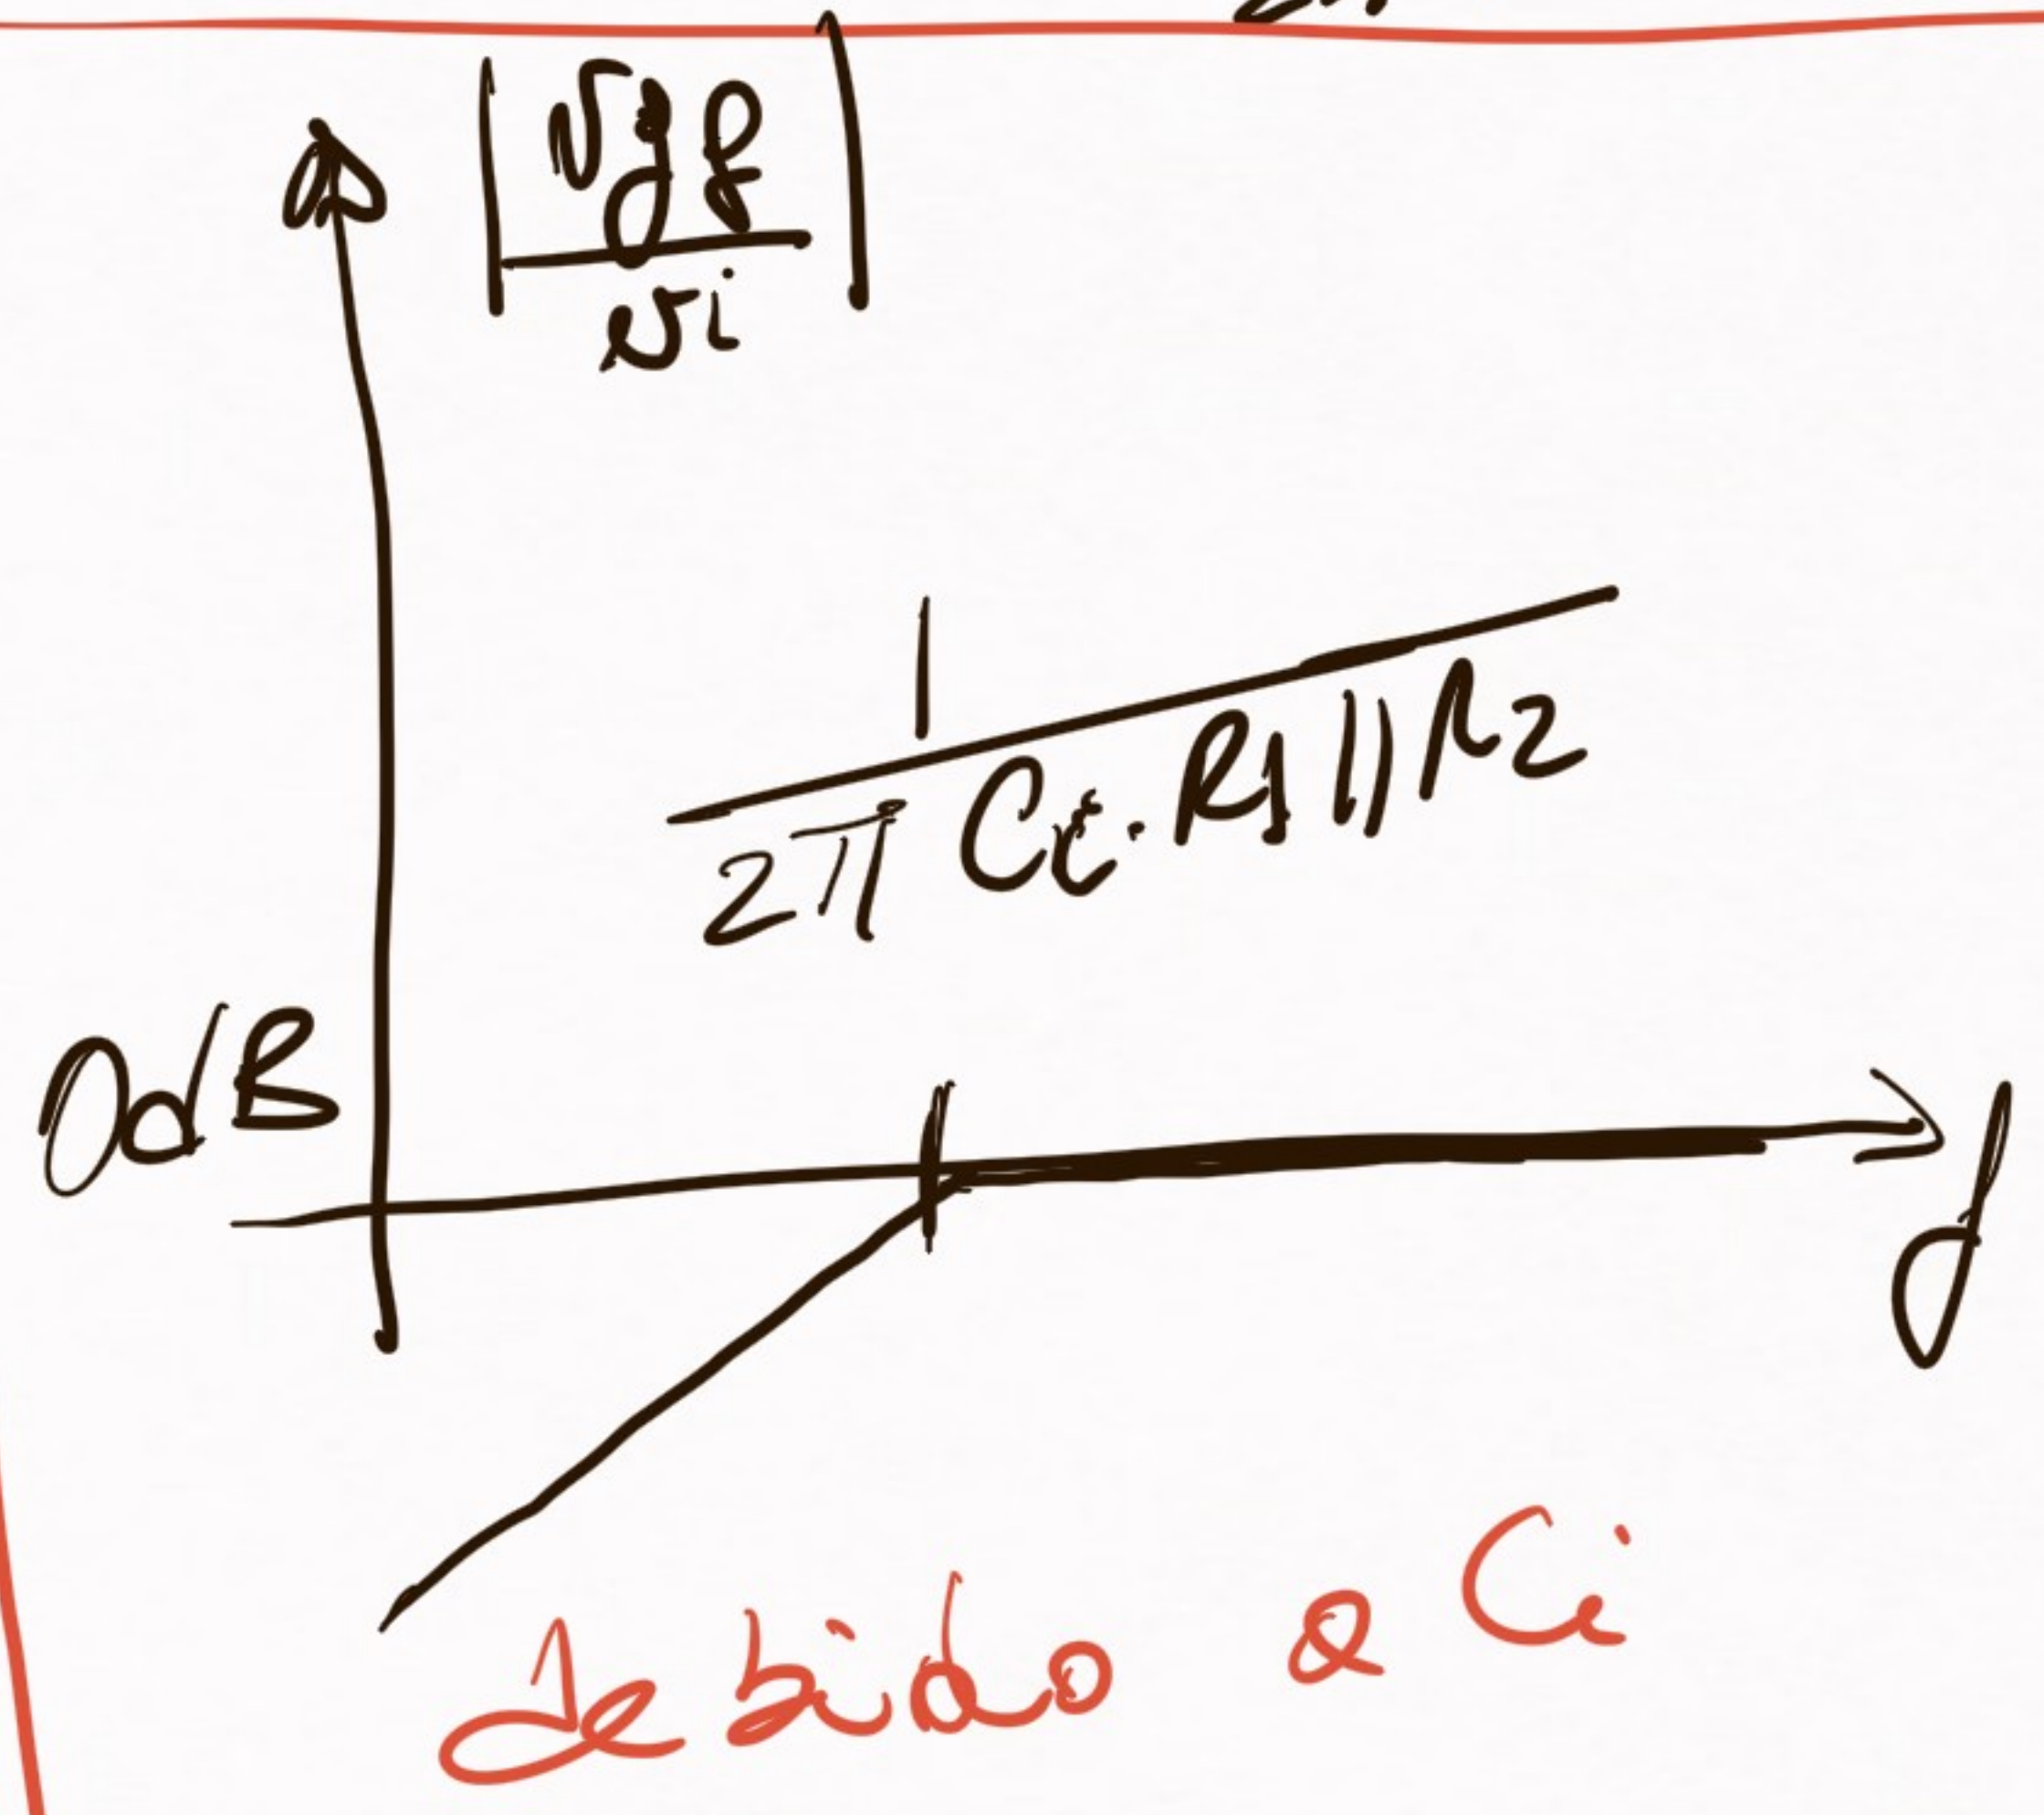 |vgf / vi|
1
2π Ci · R1 || R2
0dB
f
debido a Ci